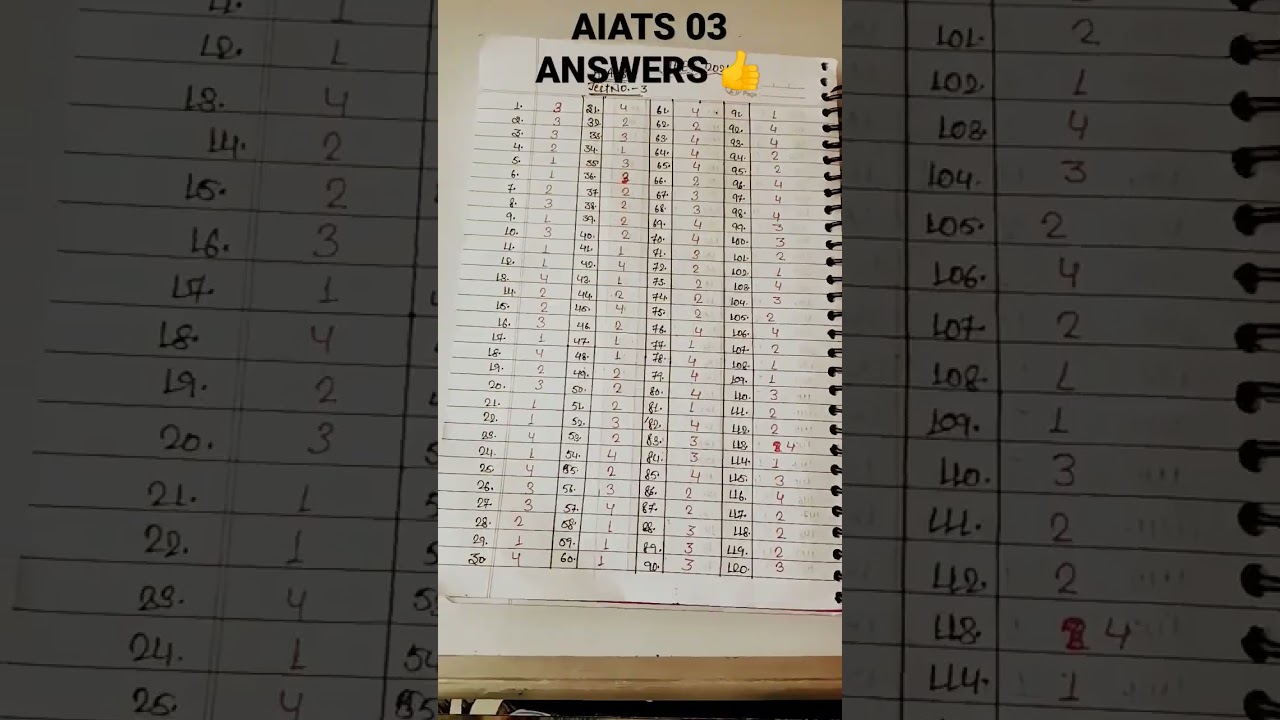 AIATS 03
ANSWERS 👍
Test No. - 3
1. 3 31. 4 61. 4 91. 1
2. 3 32. 2 62. 2 92. 4
3. 3 33. 3 63. 4 93. 4
4. 2 34. 1 64. 4 94. 2
5. 1 35. 3 65. 4 95. 2
6. 1 36. 3 66. 2 96. 4
7. 2 37. 2 67. 3 97. 4
8. 3 38. 2 68. 3 98. 4
9. 1 39. 2 69. 4 99. 3
10. 3 40. 2 70. 4 100. 3
11. 1 41. 1 71. 3 101. 2
12. 1 42. 4 72. 2 102. 1
13. 4 43. 1 73. 2 103. 4
14. 2 44. 2 74. 2 104. 3
15. 2 45. 4 75. 2 105. 2
16. 3 46. 2 76. 4 106. 4
17. 1 47. 1 77. 1 107. 2
18. 4 48. 1 78. 4 108. 1
19. 2 49. 2 79. 4 109. 1
20. 3 50. 2 80. 4 110. 3
21. 1 51. 2 81. 1 111. 2
22. 1 52. 3 82. 4 112. 2
23. 4 53. 2 83. 3 113. 4
24. 1 54. 4 84. 3 114. 1
25. 4 55. 2 85. 4 115. 3
26. 3 56. 3 86. 2 116. 4
27. 3 57. 4 87. 2 117. 2
28. 2 58. 1 88. 3 118. 2
29. 1 59. 1 89. 3 119. 2
30 4 60. 1 90. 3 120. 3